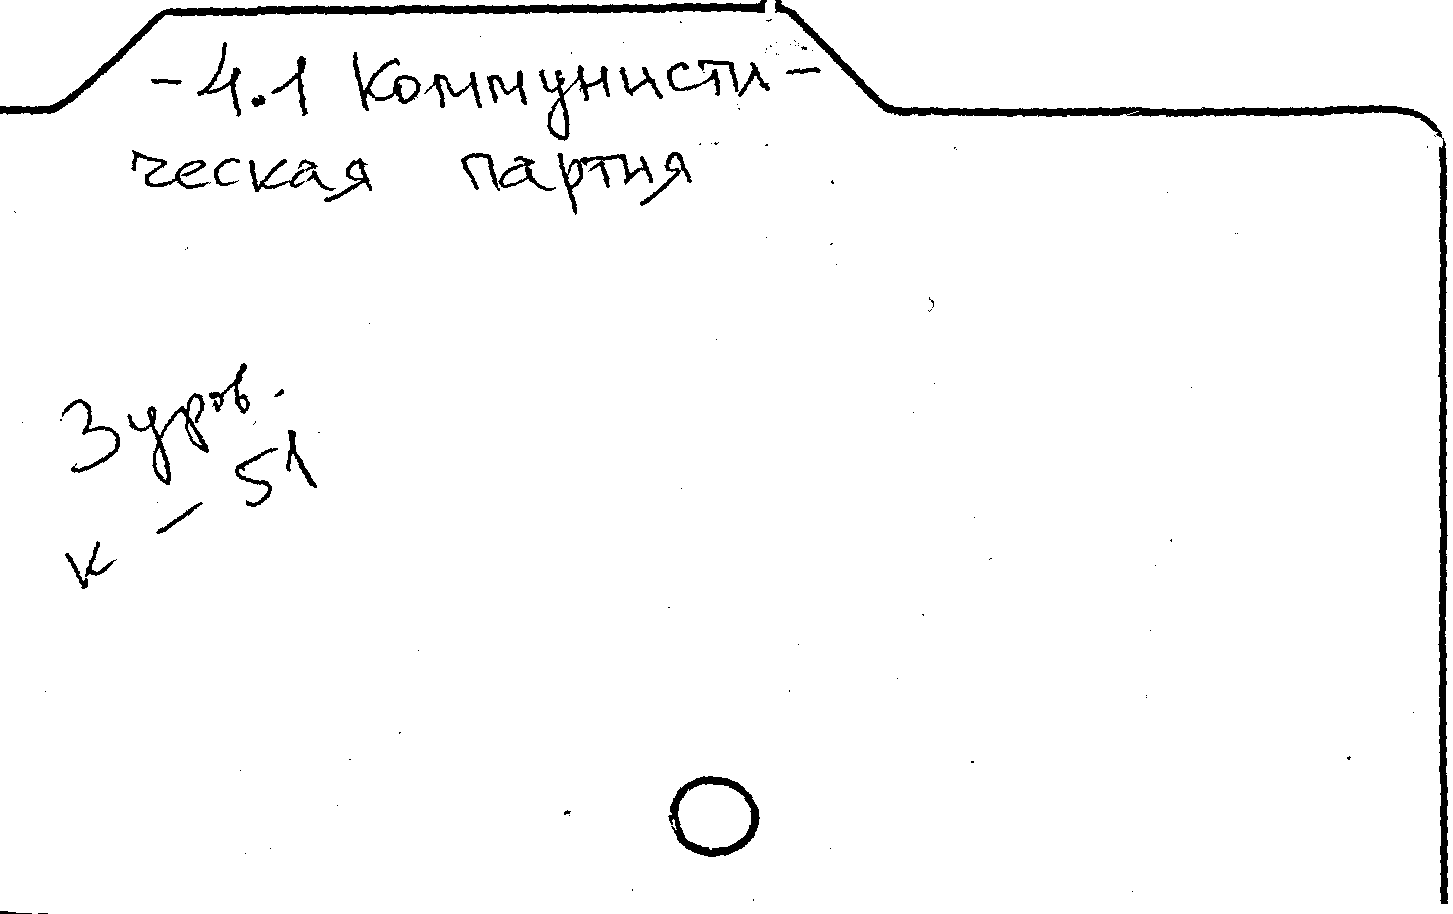 -4.1 Коммунисти-
ческая партия
3 уров.
к - 51